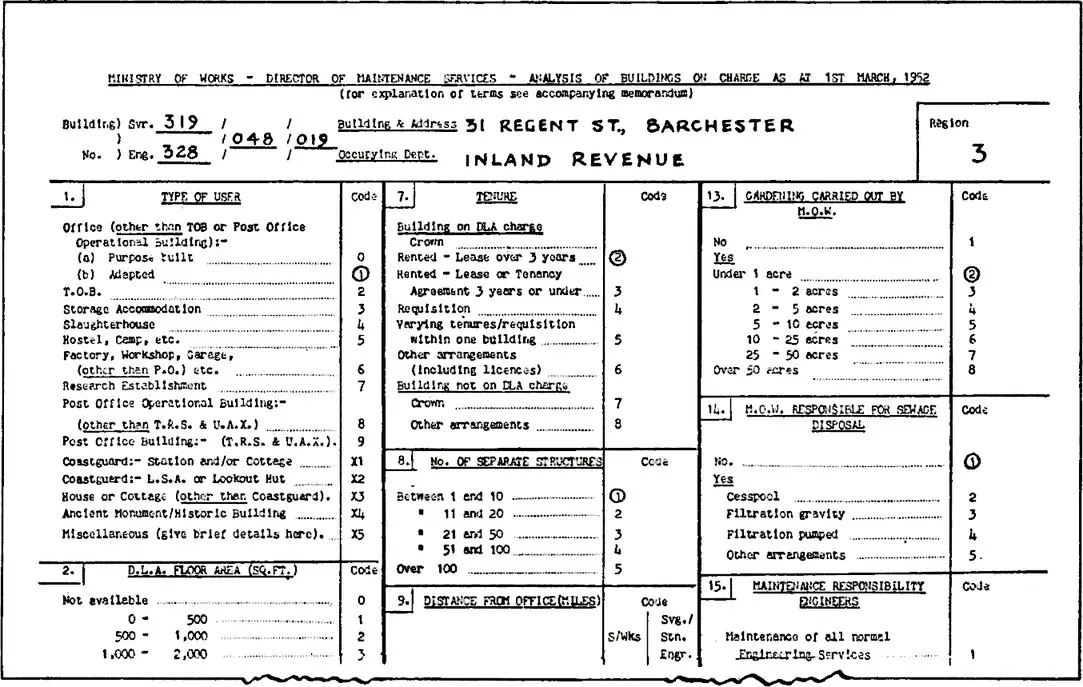 MINISTRY OF WORKS - DIRECTOR OF MAINTENANCE SERVICES - ANALYSIS OF BUILDINGS ON CHARGE AS AT 1ST MARCH, 1952
(for explanation of terms see accompanying memorandum)
Building) Svr. 319 / / Building & Address 31 REGENT ST., BARCHESTER
) / 048 / 019
No. ) Eng. 328 / / Occupying Dept. INLAND REVENUE
Region
3
1. TYPE OF USER Code
Office (other than TOB or Post Office
Operational Building):-
(a) Purpose built 0
(b) Adapted 1
T.O.B. 2
Storage Accommodation 3
Slaughterhouse 4
Hostel, Camp, etc. 5
Factory, Workshop, Garage,
(other than P.O.) etc. 6
Research Establishment 7
Post Office Operational Building:-
(other than T.R.S. & U.A.X.) 8
Post Office Building:- (T.R.S. & U.A.X.). 9
Coastguard:- Station and/or Cottage X1
Coastguard:- L.S.A. or Lookout Hut X2
House or Cottage (other than Coastguard). X3
Ancient Monument/Historic Building X4
Miscellaneous (give brief details here). X5
2. D.L.A. FLOOR AREA (SQ.FT.) Code
Not available 0
0 - 500 1
500 - 1,000 2
1,000 - 2,000 3
7. TENURE Code
Building on DLA charge
Crown
Rented - Lease over 3 years 2
Rented - Lease or Tenancy
Agreement 3 years or under 3
Requisition 4
Varying tenures/requisition
within one building 5
Other arrangements
(including licences) 6
Building not on DLA charge
Crown 7
Other arrangements 8
8. No. OF SEPARATE STRUCTURES Code
Between 1 and 10 1
" 11 and 20 2
" 21 and 50 3
" 51 and 100 4
Over 100 5
9. DISTANCE FROM OFFICE(MILES) Code
Svg./
S/Wks Stn.
Engr.
13. GARDENING CARRIED OUT BY Code
M.O.W.
No 1
Yes
Under 1 acre 2
1 - 2 acres 3
2 - 5 acres 4
5 - 10 acres 5
10 - 25 acres 6
25 - 50 acres 7
Over 50 acres 8
14. M.O.W. RESPONSIBLE FOR SEWAGE Code
DISPOSAL
No. 1
Yes
Cesspool 2
Filtration gravity 3
Filtration pumped 4
Other arrangements 5.
15. MAINTENANCE RESPONSIBILITY Code
ENGINEERS
Maintenance of all normal
Engineering Services 1